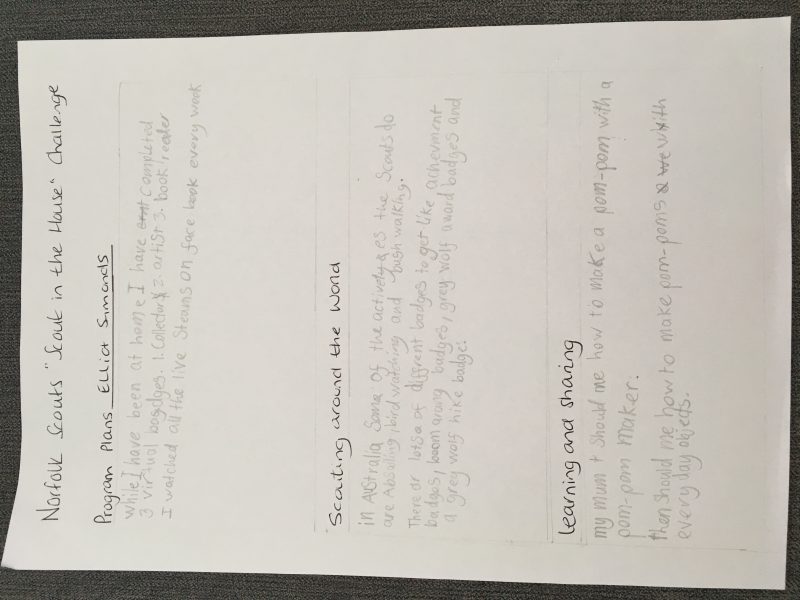 Norfolk Scouts "Scout in the House" Challenge
Program Plans Elliot Simonds
while I have been at home I have completed
3 virtual bagdges. 1. Collector 2. artist 3. book reader
I watched all the live Steams on face book every week
Scouting around the World
in Australia Some of the activelyes the Scouts do
are Absaling, bird watching and bush walking.
There ar lotsa of different badges to get like achevment
badges, boomarang badges, grey wolf award badges and
a grey wolf hike badge.
Learning and sharing
my mum should me how to make a pom-pom with a
pom-pom maker.
then should me how to make pom-poms with
every day objects.